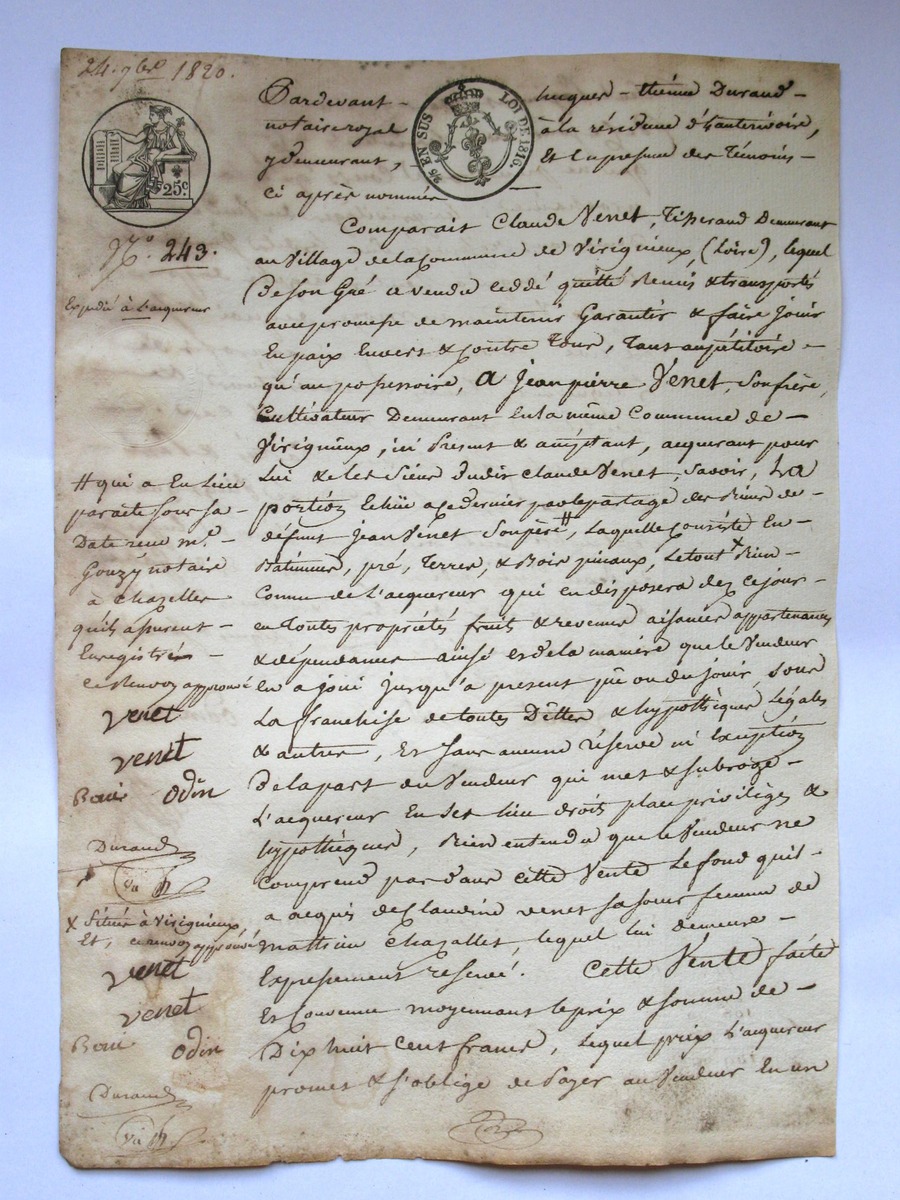 24. 9bre 1820.
25c.
25 EN SUS LOI DE 1816.
N.° 243.
Expédié à L'acquereur
Pardevant - Jacques - Etienne Durand -
notaire royal à la résidence de
y demeurant, Et en presence des Témoins -
Ci après nommés
Comparait Claude Venet, Tisserand Demeurant
au Village de la Commune de Virigneux, (Loire), lequel
De son Gré a vendu ceddé quitté Remis & transportés
avec promesse de maintenir Garantir & faire Jouir
En paix Envers & Contre Tous, Tant au pétitoire -
qu'au possessoire, A Jean pierre Venet, Son frère,
Cultivateur Demeurant En la même Commune de -
Virigneux, ici Present & acceptant, acquerant pour
Lui & les Siens dudit Claude Venet, Savoir, La
portion Echue a ce dernier par le partage des Biens de -
défunt Jean Venet Son père #, Laquelle Consiste En -
Batiments, pré, Terres, & Bois pinaux, Le tout x Bien -
Connu de L'acquereur qui en disposera dez ce jour -
en Toutes propriétés fruits & revenus aisances appartenances
& dépendances ainsi et de la manière que le Vendeur
En a joui Jusqu'à present pû ou du jouir, sous
La franchise de toutes Dettes & hypothèques Légales
& autres, Et Sans aucune réserve ni Exception
De la part du Vendeur qui met & subroge -
L'acquereur En Ses lieu droits place privilèges &
hypothèques, Bien entendu que le Vendeur ne
Comprend pas dans cette Vente Le fond qu'il -
a acquis de Claudine Venet Sa sœur femme de
Mathieu Chazallet, lequel lui demeure -
Expressement reservé. Cette Vente faite
Et Convenue moyennant le prix & Somme de -
Dix huit Cent francs, Lequel prix L'acquereur
promet & S'oblige de Payer au Vendeur En un
# qui a En Lieu
par acte sous sa -
Date reçu m.e -
Gouzy notaire
à Chazelles
qu'ils assurent -
Enregistré -
Ce Renvoy approuvé
Venet
Venet
Odin
Durand
x Situés à Virigneux
Et, ce renvoy approuvé
Venet
Venet
Odin
Durand